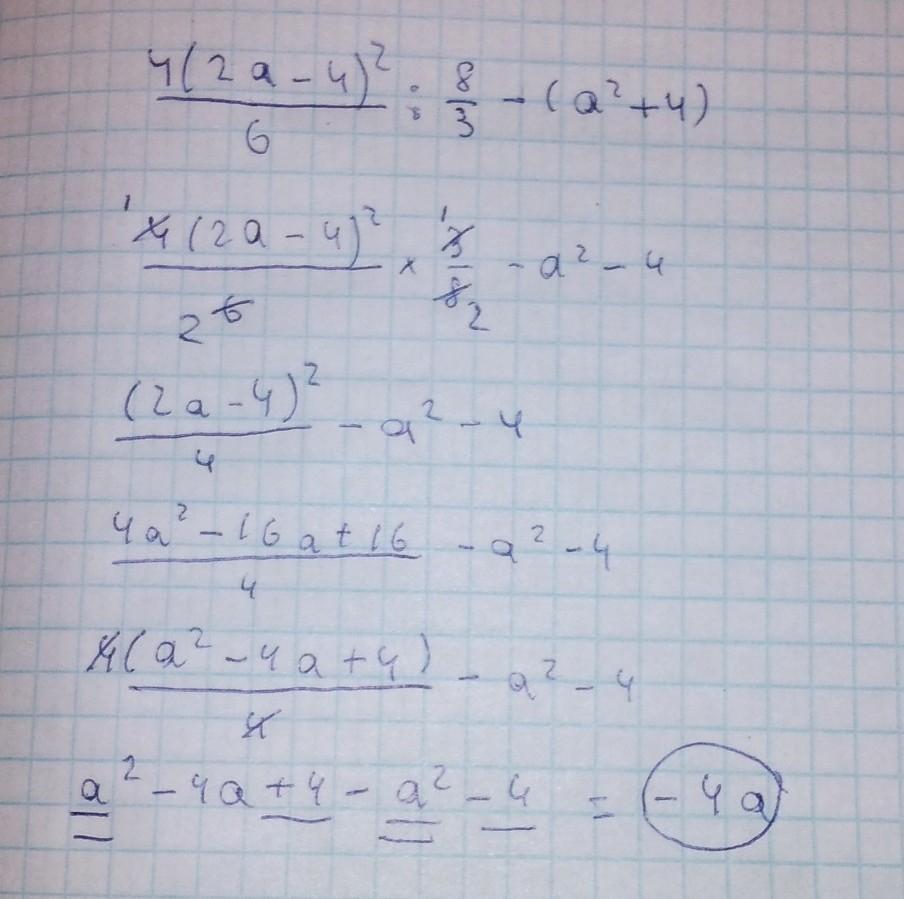 4(2a-4)²/6 : 8/3 - (a²+4)
¹4(2a-4)²/2 6 × ¹3/8 2 - a² - 4
(2a-4)²/4 - a² - 4
4a²-16a+16/4 - a² - 4
4(a²-4a+4)/4 - a² - 4
a² - 4a + 4 - a² - 4 = -4a